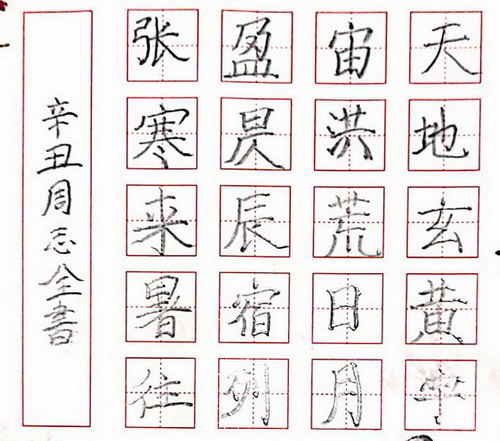 天地玄黄宇
宙洪荒日月
盈昃辰宿列
张寒来暑往
辛丑周志全書